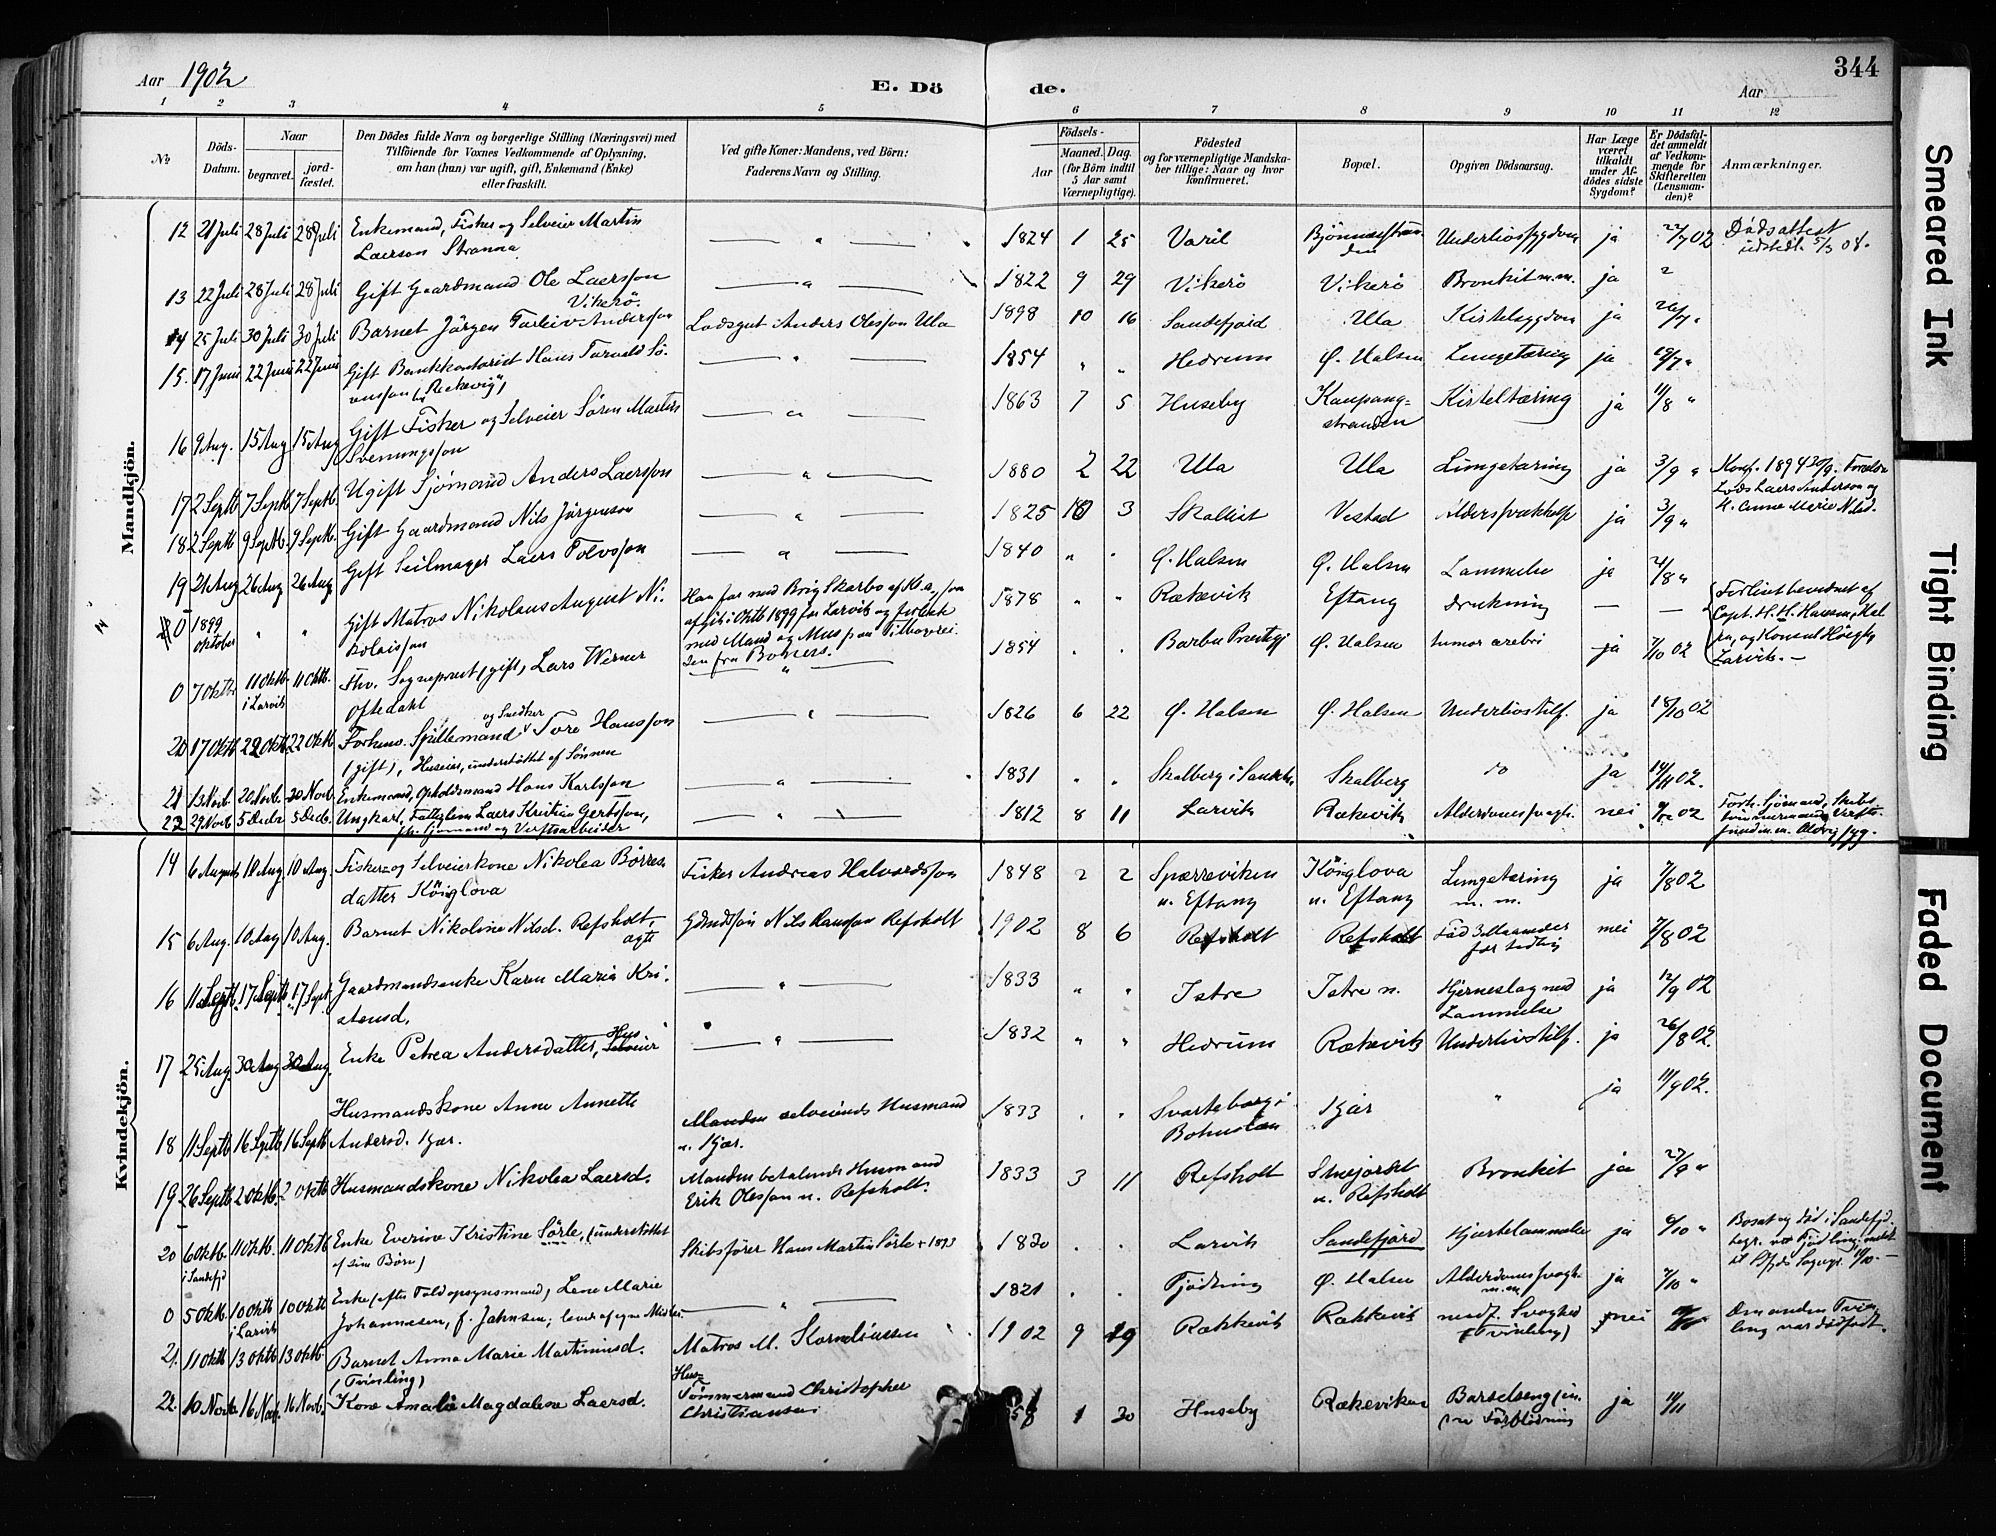 Aar 1902
E. Döde.
Aar
344
1 2 3 4 5 6 7 8 9 10 11 12
No
Döds-Datum.
Naar
begravet.
jord-fæstet.
Den Dödes fulde Navn og borgerlige Stilling (Næringsvei) med
Tilföiende for Voxnes Vedkommende af Oplysning,
om han (hun) var ugift, gift, Enkemand (Enke)
eller fraskilt.
Ved gifte Koner: Mandens, ved Börn:
Faderens Navn og Stilling.
Födsels-
Aar
Maaned. Dag.
(for Börn indtil
5 Aar samt
Værnepligtige).
Födested
og for værnepligtige Mandska-
ber tillige: Naar og hvor
konfirmeret.
Bopæl.
Opgiven Dödsaarsag.
Har Læge
været
tilkaldt
under Af-
dödes sidste
Sygdom?
Er Dödsfal-
det anmeldt
af Vedkom-
mende for
Skifteretten
(Lensman-
den)?
Anmærkninger.
Mandkjön.
12 21 Juli 28 Juli 28 Juli Enkemand, Fisker og Selveier Martin
Laerson Stranna 1824 1 25 Varil Underlivssygdom ja 22/7 02 Dødsattest
udstedt 5/3 08.
13 22 Juli 28 Juli 28 Juli Gift Gaardmand Ole Laersson
Vikerö. 1822 9 29 Vikerö Vikerö Bronkit m.m. ja
14 25 Juli 30 Juli 30 Juli Barnet Jörgen Torleiv Anderson Lodsgut Anders Olsson Ula 1898 10 16 Sandefjord Ula Kirtelsygdom ja 26/7 "
15. 17 Juni 22 Juni 22 Juni Gift Bankkontorist Hans Torvald Sö-
rensson (Rækevig) 1854 " " Hedrum Ø. Halsen Lungetæring ja 19/7 "
16 9 Aug. 15 Aug 15 Aug Gift Fisker og Selveier Sören Martin
Svenungsson 1863 7 5 Huseby Kaupang-
stranden Kirteltæring ja 11/8 "
17 2 Septb 7 Septb. 7 Septb. Ugift Sjømand Anders Laersson 1880 2 22 Ula Ula Lungetæring ja 3/9 " Konf. 1894 30/9. Forældre
Lods Laers Anderson og
H. Anne Marie Nilsd.
18 2 Septb 9 Septb. 9 Septb. Gift Gaardmand Nils Jörgenson 1825 10 3 Skallist Vestad ja 3/9 "
19 21 Aug 26 Aug 26 Aug. Gift Seilmager Laers Tolvsson 1840 " " Ø. Halsen Ø. Halsen Lammelse ja 21/8 "
0 1899
oktober " " Gift Matros Nikolaus August Ni-
kolaisson Han for med Brig Skarbo af
afgik i Oktb 1899 fra Larvik og forliste
med Mand og Mus paa
den fra Bohners. 1878 " " Rækevik Eftang drukning — — Forliset bevidnet af
Capt. H. H. Hansen,
og Konsul Höegh,
Larvik. —
0 7 Oktb 11 Oktb
i Larvik 11 Oktb. Fhv. Sogneprest (gift) Lars Werner
Oftedahl 1854 " " Barbu Prestegj Ø. Halsen tumor cerebri ja 7/10 02
20 17 Oktb 22 Oktb. 22 Oktb. Forhenv. Spillemand og Snedker Tore Hansson
(gift), Huseier, understöttet af Sönnen 1826 6 22 Ø. Halsen Ø. Halsen Underlivstilf. ja 18/10 02
21 13 Novb. 20 Novb. 20 Novb. Enkemand, Opholdsmand Hans Karlsson 1831 " " Skalberg Skalberg do ja 14/11 02.
22 29 Novb 5 Decbr 5 Decb. Ungkarl, Fattiglem Laers Kristian Gertsson,
fh. Sjømand og Verftsarbeider 1812 8 11 Larvik Rækevik nei
Kvindekjön.
14 6 August 10 Aug 10 Aug. Fisker og Selveierkone Nikolea Börres-
datter Köiglova Fisker Andreas Halvordsson 1848 2 2 Sperreviken
u. Eftang Köiglova
u. Eftang Lungetæring
m. m. ja 7/8 02
15 6 Aug. 10 Aug 10 Aug. Barnet Nikoline Nilsd. Refsholt,
ægte Gdmdssön Nils Hansson Refsholt 1902 8 6 Refsholt Refsholt Fød 3 Maaneder
for tidlig nei 7/8 02
16 11 Septb. 17 Septb. 17 Sept. Gaardmandsenke Karen Maria Kri-
stensd. 1833 " " Istre Istre n. Hjerneslag med
Lammelse ja 12/9 02
17 25 Aug. 30 Aug 30 Aug. Enke Petrea Andersdatter, Huseier 1832 " " Hedrum Rækevik Underlivstilf. ja 26/8 02.
18 11 Septb 16 Septb 16 Septb Husmandskone Anne Annette
Andersd. Kjær. Manden selveiende Husmand
u. Kjær. 1833 " " Svarteborg i
Bohuslän Kjær " ja 11/9 02.
19 26 Septb 2 Oktb. 2 Oktb Husmandskone Nikolea Laersd. Manden betalende Husmand
Erik Olesson u. Refsholt. 1833 3 11 Refsholt
u. Refsholt Bronkit ja 27/9 "
20 6 Oktb.
i Sandefjd 11 Oktb. 11 Oktb Enke Everine Kristine Sörle, (understöttet
af sine Börn) Skibsförer Hans Martin Sörle + 1893 1830 " " Larvik Sandefjord Hjertelammelse ja 6/10 " Bosat og död i Sandefjd.
begr. ved Tjödling, meldt
til
0 5 Oktb. 10 Oktb
i Larvik 10 Oktb Enke (efter Toldopsynsmand) Lene Marie
Johannesen, f. Jahnsen; lever af egne Midler. 1821 " " Tjödling Ø. Halsen Alderdomssvagh.
m.m ja 7/10 "
21. 11 Oktb 13 Oktb 13 Oktb. Barnet Anna Marie Martiniusd.
(Tvilling) Matros M. Korneliussen 1902 9 19 Rækkevik Rækkevik medf. Svaghed
(Tvilling) nei Den anden Tvil-
ling var dødfödt.
22. 10 Novb 16 Nov. 16 Novb. Kone Amalie Magdalene Laersd. Hus-
Tömmermand Christopher
Christiansen 1 30 Huseby Rækeviken Barselseng
Forblödning ja
Smeared Ink
Tight Binding
Faded Document